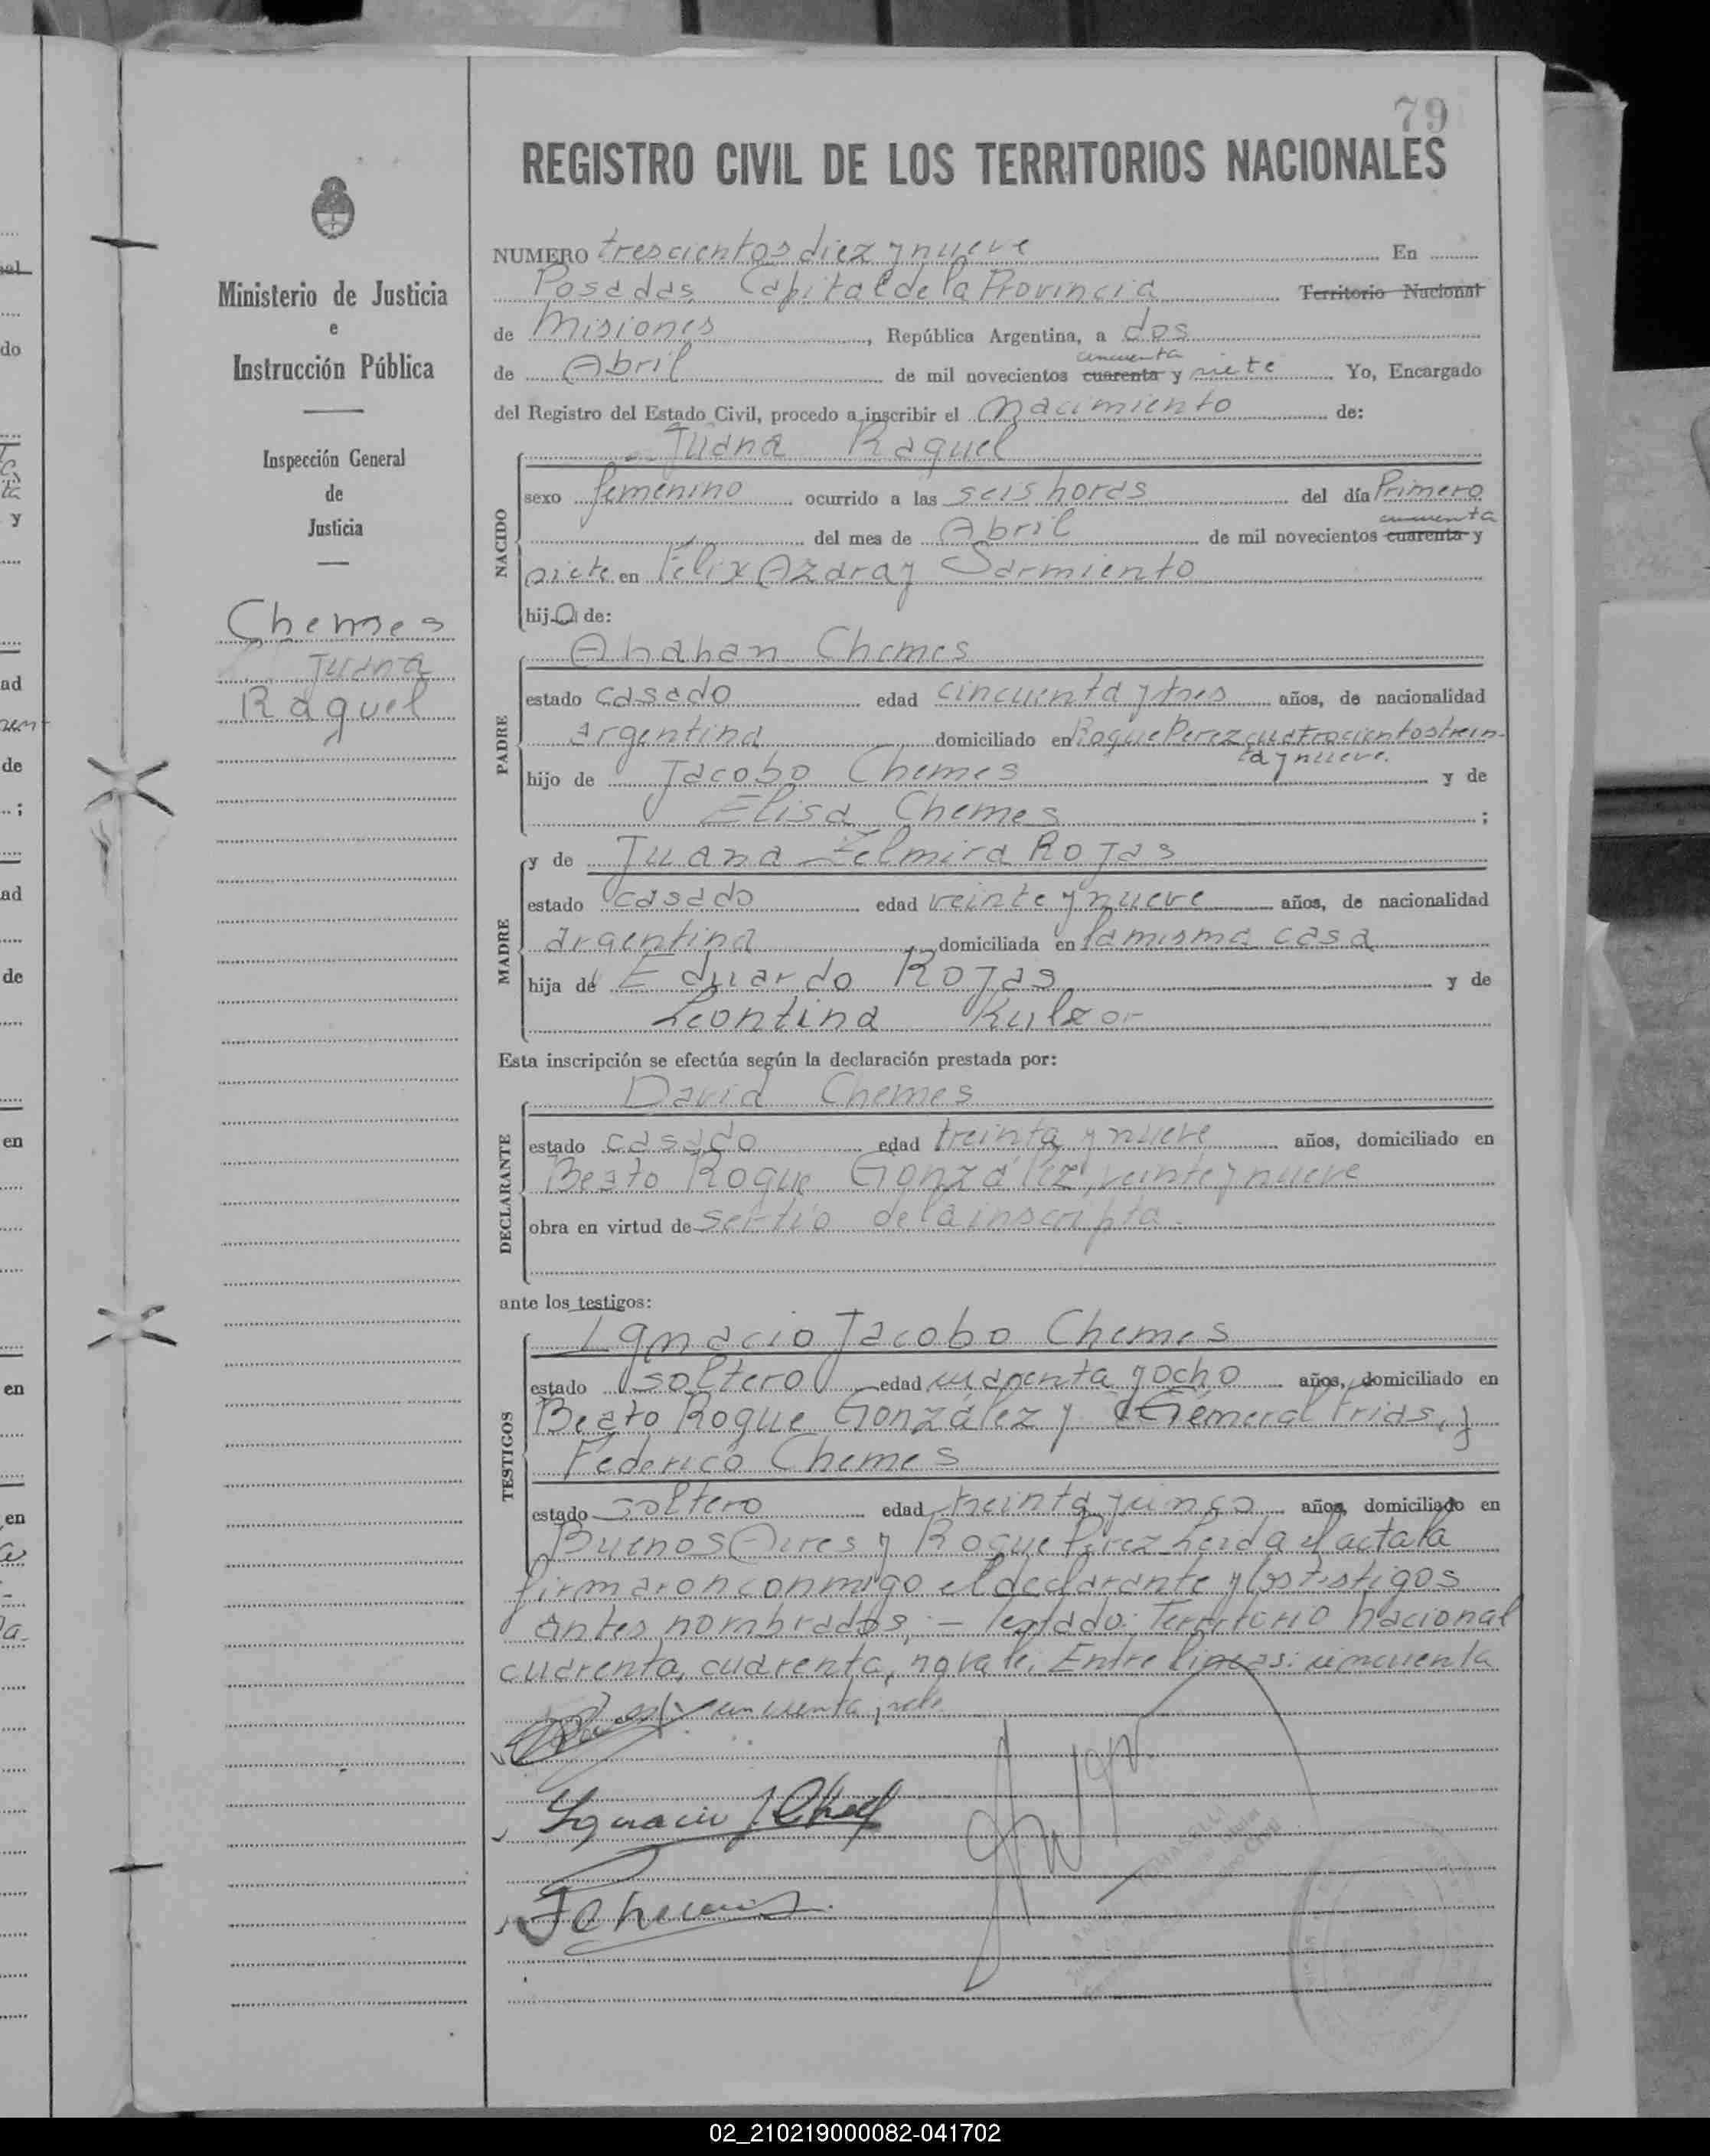 79
REGISTRO CIVIL DE LOS TERRITORIOS NACIONALES
Ministerio de Justicia
e
Instrucción Pública
Inspección General
de
Justicia
Chemes
Juana
Raquel
NUMERO trescientos diez y nueve En
Posadas, Capital de la Provincia Territorio Nacional
de Misiones, República Argentina, a dos
cincuenta
de Abril de mil novecientos cuarenta y siete Yo, Encargado
del Registro del Estado Civil, procedo a inscribir el Nacimiento de:
NACIDO
Juana Raquel
sexo femenino ocurrido a las seis horas del día Primero
cincuenta
del mes de Abril de mil novecientos cuarenta y
siete en Félix Azara y Sarmiento
hija de:
PADRE
Chemes
estado casado edad cincuenta y tres años, de nacionalidad
argentina domiciliado en Roque Perez cuatrocientos trein-
ta y nueve.
hijo de Jacobo Chemes y de
Elisa Chemes ;
MADRE
y de Juana Zelmira Rojas
estado casado edad veinte y nueve años, de nacionalidad
argentina domiciliada en la misma casa
hija de Eduardo Rojas y de
Leontina
Esta inscripción se efectúa según la declaración prestada por:
DECLARANTE
David Chemes
estado casado edad treinta y nueve años, domiciliado en
Beato Roque González, veinte y nueve
obra en virtud de ser tío de la inscripta.
ante los testigos:
TESTIGOS
Ignacio Jacobo Chemes
estado soltero edad cuarenta y ocho años, domiciliado en
Beato Roque González y General Frias, y
Federico Chemes
estado soltero edad treinta y cinco años, domiciliado en
Buenos Aires y Roque Perez Leida el acta la
firmaron conmigo el declarante y los testigos
antes nombrados.- Testado: Territorio Nacional
cuarenta, cuarenta, no vale. Entre lineas: cincuenta
cincuenta, vale.
Ignacio J. Chemes
F Chemes
02_210219000082-041702